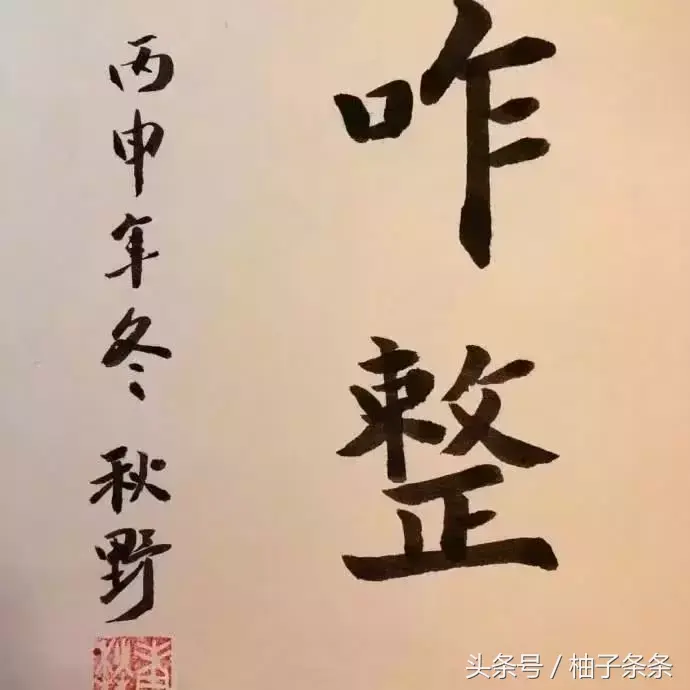 咋整
丙申年冬 秋野
头条号 / 柚子条条